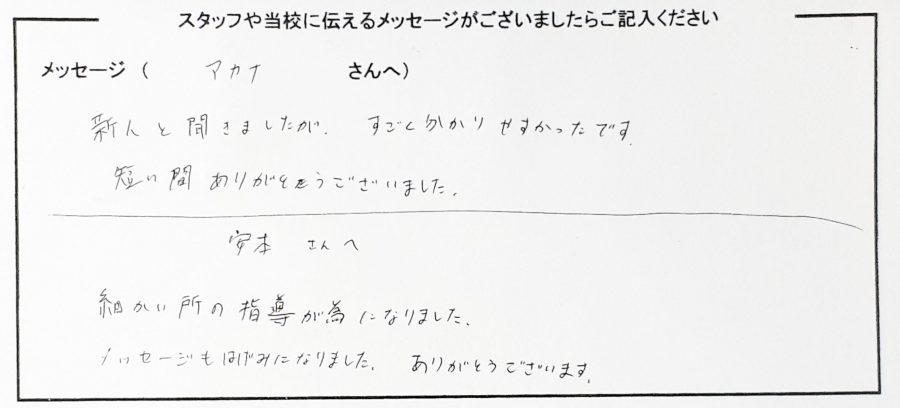 スタッフや当校に伝えるメッセージがございましたらご記入ください
メッセージ ( アカナ さんへ)
新人と聞きましたが、すごく分かりやすかったです。
短い間ありがとうございました。
安本 さんへ
細かい所の指導が為になりました。
メッセージもはげみになりました。 ありがとうございます。